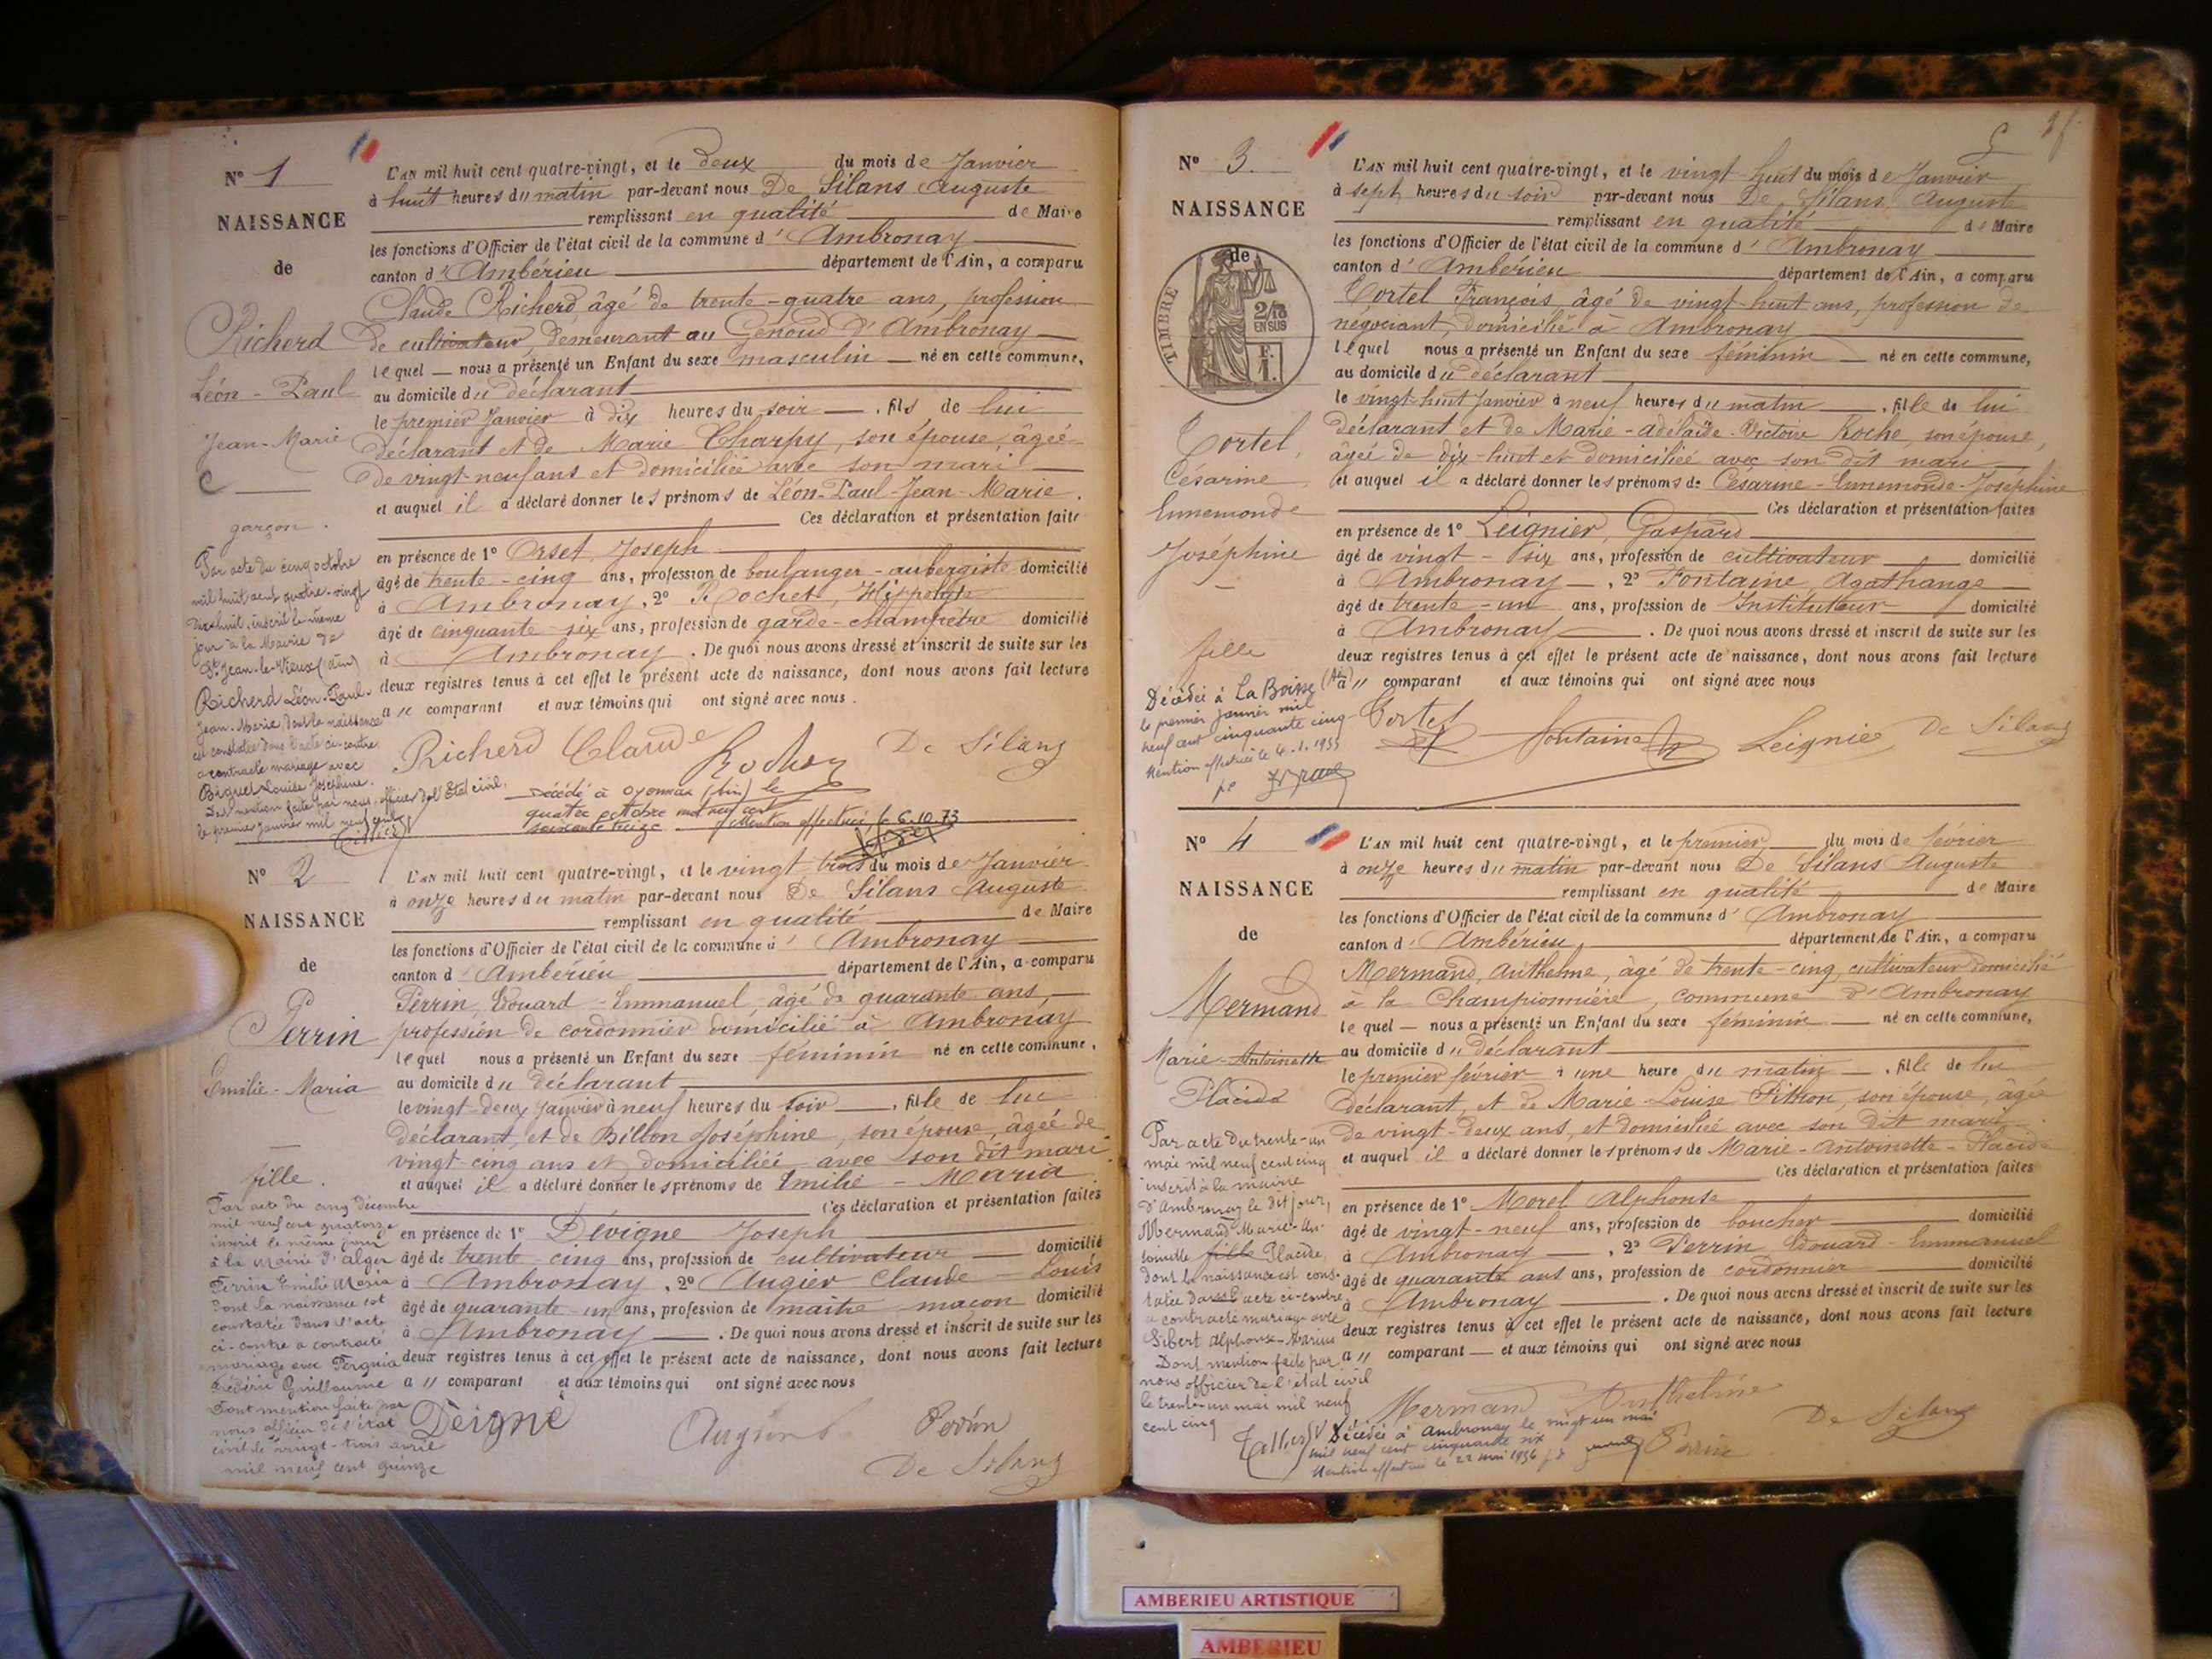 N° 1
NAISSANCE
de
Richerd
Léon-Paul
Jean-Marie
garçon.
Par acte du cinq octobre
mil huit cent quatre-vingt
dix huit, inscrit le même
jour à la Mairie de
St Jean-le-Vieux (Ain)
Richerd Léon-Paul-
Jean-Marie, dont la naissance
est constatée dans l'acte ci-contre
a contracté mariage avec
Biguet Louise Joséphine.
Dont mention faite par nous, officier de l'Etat civil,
le premier janvier mil neuf cent
L'AN mil huit cent quatre-vingt, et le deux du mois de Janvier
à huit heures du matin par-devant nous De Silans Auguste
remplissant en qualité de Maire
les fonctions d'Officier de l'état civil de la commune d'Ambronay
canton d'Ambérieu département de l'Ain, a comparu
Claude Richerd âgé de trente-quatre ans, profession
de cultivateur, demeurant au Genoud d'Ambronay
lequel nous a présenté un Enfant du sexe masculin né en cette commune,
au domicile du déclarant
le premier Janvier à dix heures du soir, fils de lui
déclarant et de Marie Charpy, son épouse, âgée
de vingt-neuf ans et domiciliée avec son mari
et auquel il a déclaré donner les prénoms de Léon-Paul-Jean-Marie.
Ces déclaration et présentation faites
en présence de 1° Orset, Joseph
âgé de trente-cinq ans, profession de boulanger-aubergiste domicilié
à Ambronay, 2° Rochet, Hippolyte
âgé de cinquante-six ans, profession de garde-champêtre domicilié
à Ambronay. De quoi nous avons dressé et inscrit de suite sur les
deux registres tenus à cet effet le présent acte de naissance, dont nous avons fait lecture
au comparant et aux témoins qui ont signé avec nous.
Richerd Claude Rochet De Silans
Décédé à Oyonnax (Ain) le
quatre octobre mil neuf cent
soixante treize Mention effectuée le 6.10.73
N° 2
NAISSANCE
de
Perrin
Emilie-Maria
fille.
Par acte du cinq décembre
mil neuf cent quatorze
inscrit le même jour
à la Mairie d'Alger
Perrin Emilie Maria
dont la naissance est
constatée dans l'acte
ci-contre a contracté
mariage avec
Guillaume
Dont mention faite par
nous officier de l'état
civil le vingt-trois avril
mil neuf cent quinze
L'AN mil huit cent quatre-vingt, et le vingt trois du mois de Janvier
à onze heures du matin par-devant nous De Silans Auguste
remplissant en qualité de Maire
les fonctions d'Officier de l'état civil de la commune d'Ambronay
canton d'Ambérieu département de l'Ain, a comparu
Perrin, Edouard-Emmanuel, âgé de quarante ans,
profession de cordonnier domicilié à Ambronay
lequel nous a présenté un Enfant du sexe féminin né en cette commune,
au domicile du déclarant
le vingt-deux Janvier à neuf heures du soir, fille de lui
déclarant, et de Billon Joséphine, son épouse, âgée de
vingt-cinq ans et domiciliée avec son dit mari
et auquel il a déclaré donner les prénoms de Emilie-Maria
Ces déclaration et présentation faites
en présence de 1° Dévigne Joseph
âgé de trente-cinq ans, profession de cultivateur domicilié
à Ambronay, 2° Augier Claude-Louis
âgé de quarante-un ans, profession de maître maçon domicilié
à Ambronay. De quoi nous avons dressé et inscrit de suite sur les
deux registres tenus à cet effet le présent acte de naissance, dont nous avons fait lecture
au comparant et aux témoins qui ont signé avec nous
Perrin
De Silans
5
N° 3.
NAISSANCE
de
TIMBRE
2/10
EN SUS
F.
1.
Tortel,
Césarine
Ennemonde
Joséphine
fille
Décédée à La Boisse (Ain)
le premier janvier mil
neuf cent cinquante cinq
Mention effectuée le 4.1.1955
L'AN mil huit cent quatre-vingt, et le vingt-huit du mois de Janvier
à sept heures du soir par-devant nous De Silans Auguste
remplissant en qualité de Maire
les fonctions d'Officier de l'état civil de la commune d'Ambronay
canton d'Ambérieu département de l'Ain, a comparu
Tortel François, âgé de vingt-huit ans, profession de
négociant, domicilié à Ambronay
lequel nous a présenté un Enfant du sexe féminin né en cette commune,
au domicile du déclarant
le vingt-huit Janvier à neuf heures du matin, fille de lui
déclarant et de Marie-Adélaïde-Victoire Roche, son épouse,
âgée de dix-huit et domiciliée avec son dit mari
et auquel il a déclaré donner les prénoms de Césarine-Ennemonde-Joséphine
Ces déclaration et présentation faites
en présence de 1° Leignier, Gaspard
âgé de vingt-six ans, profession de cultivateur domicilié
à Ambronay, 2° Fontaine, Agathange
âgé de trente-un ans, profession de Instituteur domicilié
à Ambronay. De quoi nous avons dressé et inscrit de suite sur les
deux registres tenus à cet effet le présent acte de naissance, dont nous avons fait lecture
au comparant et aux témoins qui ont signé avec nous
Tortel Fontaine Leignier De Silans
N° 4
NAISSANCE
de
Mermand
Marie-Antoinette
Placide
Par acte du trente-un
mai mil neuf cent cinq
inscrit à la mairie
d'Ambronay le dit jour,
Mermand Marie-An-
toinette fille Placide,
dont la naissance est cons-
tatée dans l'acte ci-contre
a contracté mariage avec
Sibert Alphonse-Marius
Dont mention faite par
nous officier de l'état civil
le trente-un mai mil neuf
cent cinq
L'AN mil huit cent quatre-vingt, et le premier du mois de février
à onze heures du matin par-devant nous De Silans Auguste
remplissant en qualité de Maire
les fonctions d'Officier de l'état civil de la commune d'Ambronay
canton d'Ambérieu, département de l'Ain, a comparu
Mermand, Anthelme, âgé de trente-cinq, cultivateur domicilié
à la Championnière, commune d'Ambronay
lequel nous a présenté un Enfant du sexe féminin né en cette commune,
au domicile du déclarant
le premier février à une heure du matin, fille de lui
déclarant, et de Marie-Louise Pithon, son épouse, âgée
de vingt-deux ans, et domiciliée avec son dit mari
et auquel il a déclaré donner les prénoms de Marie-Antoinette-Placide
Ces déclaration et présentation faites
en présence de 1° Morel Alphonse
âgé de vingt-neuf ans, profession de boucher domicilié
à Ambronay, 2° Perrin Edouard-Emmanuel
âgé de quarante ans ans, profession de cordonnier domicilié
à Ambronay. De quoi nous avons dressé et inscrit de suite sur les
deux registres tenus à cet effet le présent acte de naissance, dont nous avons fait lecture
au comparant et aux témoins qui ont signé avec nous
Mermand Anthelme
De Silans
Décédée à Ambronay le vingt un mai
mil neuf cent cinquante six
Mention effectuée le 22 mai 1956
Perrin
AMBERIEU ARTISTIQUE
AMBERIEU